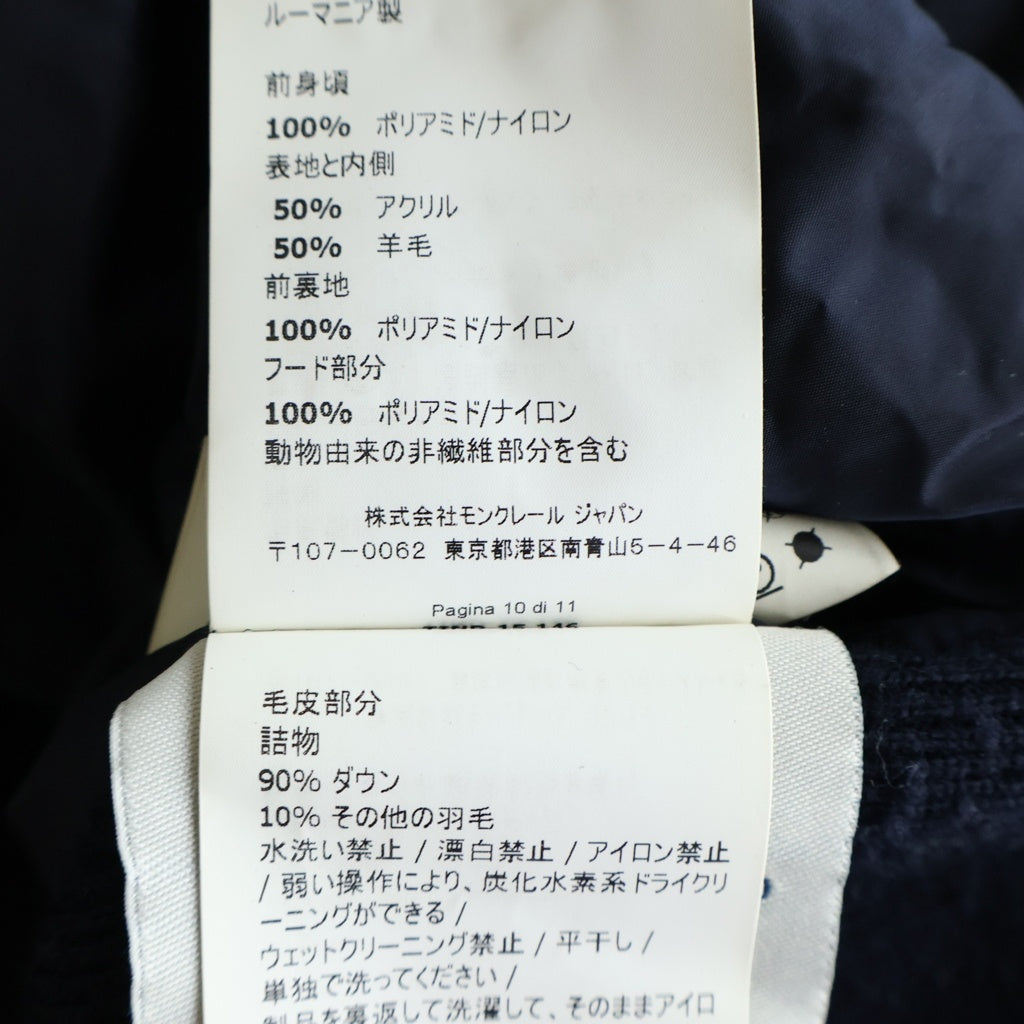 ルーマニア製
前身頃
100% ポリアミド/ナイロン
表地と内側
50% アクリル
50% 羊毛
前裏地
100% ポリアミド/ナイロン
フード部分
100% ポリアミド/ナイロン
動物由来の非繊維部分を含む
株式会社モンクレール ジャパン
〒107-0062 東京都港区南青山5-4-46
Pagina 10 di 11
毛皮部分
詰物
90% ダウン
10% その他の羽毛
水洗い禁止 / 漂白禁止 / アイロン禁止
/ 弱い操作により、炭化水素系ドライクリ
ーニングができる /
ウェットクリーニング禁止 / 平干し /
単独で洗ってください /
製品を裏返して洗濯して、そのままアイロ